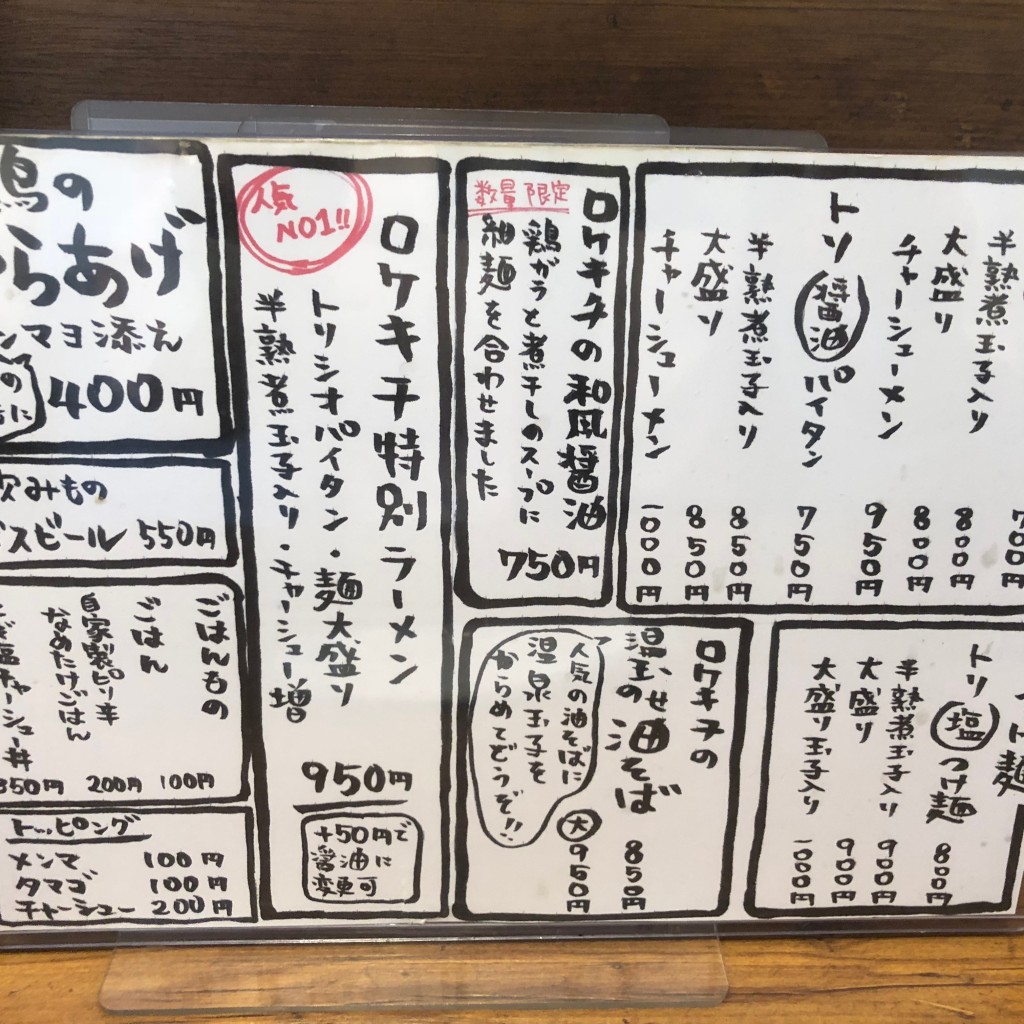 半熟煮玉子入り
大盛り
チャーシューメン
700円
800円
800円
950円
トリ醤油パイタン 750円
半熟煮玉子入り 850円
大盛り 850円
チャーシューメン 1000円
数量限定
ロケキチの和風醤油
鶏がらと煮干しのスープに
細麺を合わせました
750円
人気
NO1!!
ロケキチ特別ラーメン
トリシオパイタン・麺大盛り
半熟煮玉子入り・チャーシュー増
950円
+50円で
醤油に
変更可
鶏の
からあげ
マヨ添え
400円
飲みもの
ビール 550円
ごはんもの
ごはん 100円
自家製ピリ辛
なめたけごはん 200円
ねぎ塩チャーシュー丼 350円
トッピング
メンマ 100円
タマゴ 100円
チャーシュー 200円
トリ塩つけ麺 800円
半熟煮玉子入り 900円
大盛り 900円
大盛り玉子入り 1000円
ロケキチの
温玉のせ油そば 850円
大 950円
人気の油そばに
温泉玉子を
からめてどうぞ!!